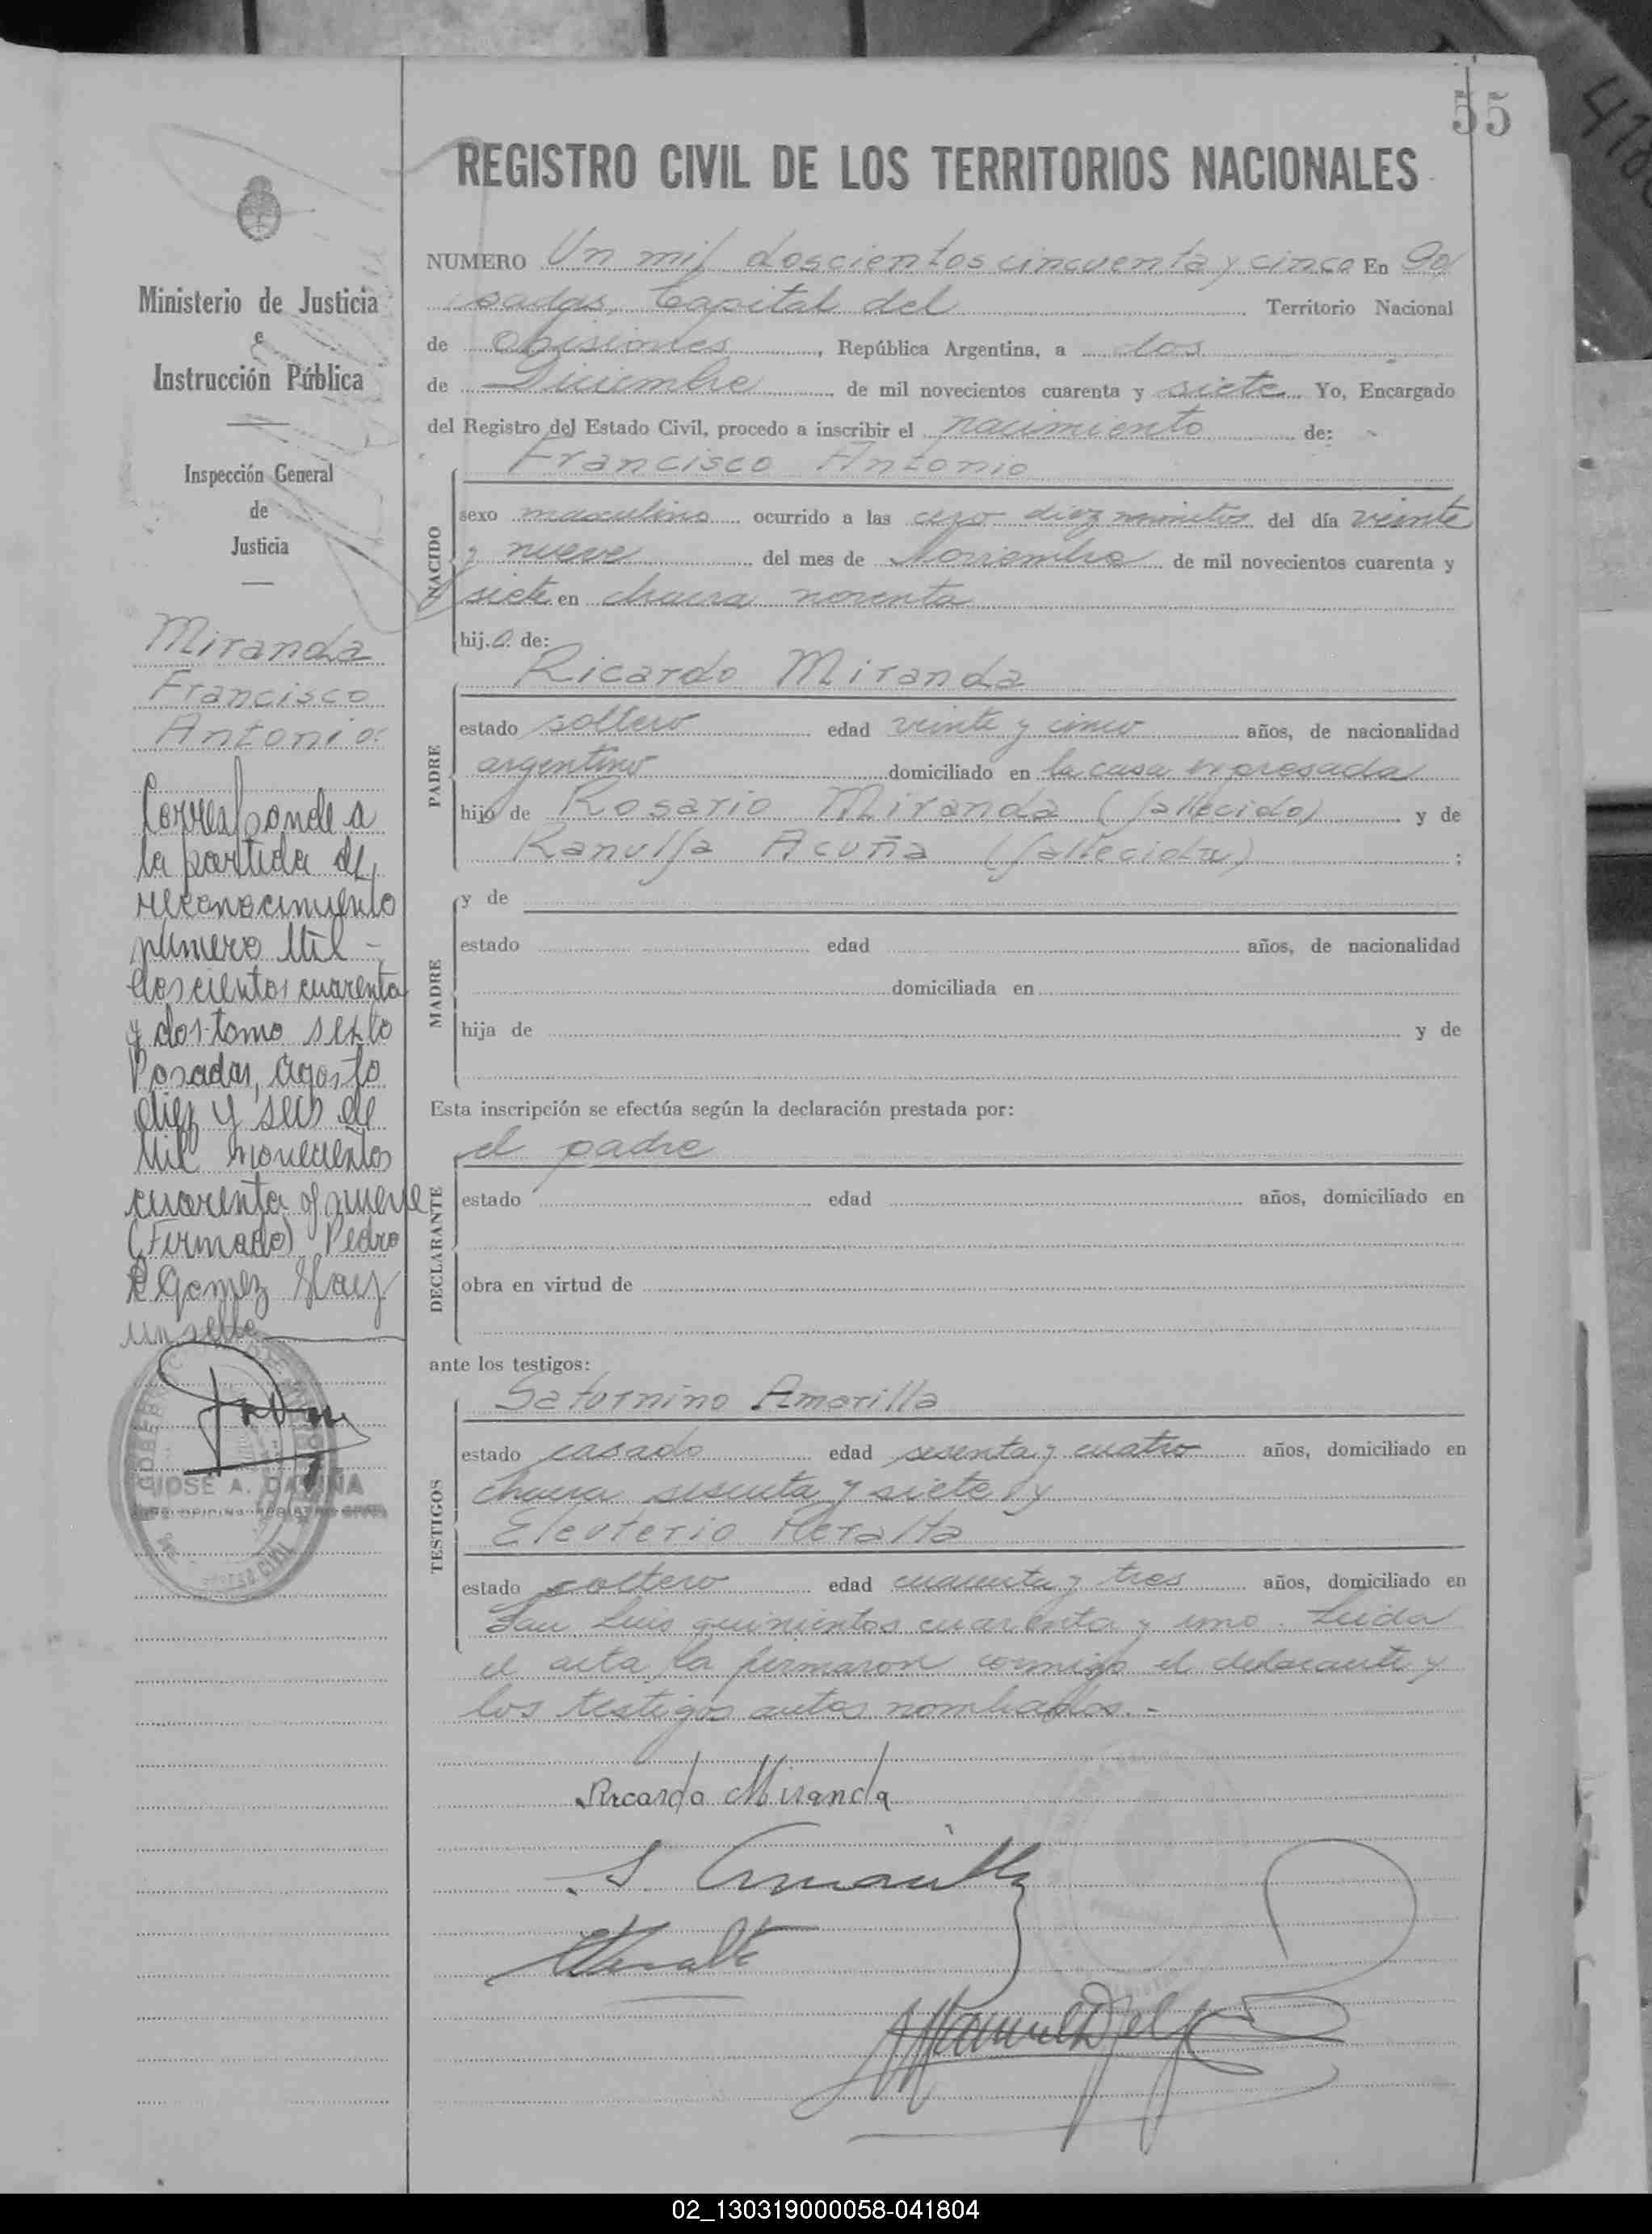 55
REGISTRO CIVIL DE LOS TERRITORIOS NACIONALES
Ministerio de Justicia
e
Instrucción Pública
Inspección General
de
Justicia
Miranda
Francisco
Antonio
Corresponde a
la partida de
reconocimiento
número Mil
doscientos cuarenta
y dos tomo sexto
Posadas, agosto
diez y seis de
Mil novecientos
cuarenta y nueve
(Firmado) Pedro
Gomez Hay
un sello
JOSE A.
NUMERO Un mil doscientos cincuenta y cinco En Po
sadas, Capital del Territorio Nacional
de Misiones, República Argentina, a dos
de Diciembre de mil novecientos cuarenta y siete Yo, Encargado
del Registro del Estado Civil, procedo a inscribir el nacimiento de:
Francisco Antonio
NACIDO
sexo masculino ocurrido a las cero diez minutos del día veinte
y nueve del mes de Noviembre de mil novecientos cuarenta y
siete en chacra noventa
hijo de:
Ricardo Miranda
PADRE
estado soltero edad veinte y cinco años, de nacionalidad
argentino domiciliado en la casa expresada
hijo de Rosario Miranda (fallecido) y de
Ranulfa Acuña (fallecida);
MADRE
y de
estado edad años, de nacionalidad
domiciliada en
hija de y de
Esta inscripción se efectúa según la declaración prestada por:
el padre
DECLARANTE
estado edad años, domiciliado en
obra en virtud de
ante los testigos:
Saturnino Amarilla
TESTIGOS
estado casado edad sesenta y cuatro años, domiciliado en
chacra sesenta y siete y
Eleuterio Peralta
estado soltero edad cuarenta y tres años, domiciliado en
San Luis quinientos cuarenta y uno. Leida
el acta la firmaron conmigo el declarante y
los testigos antes nombrados.-
Ricardo Miranda
S. Amarilla
02_130319000058-041804